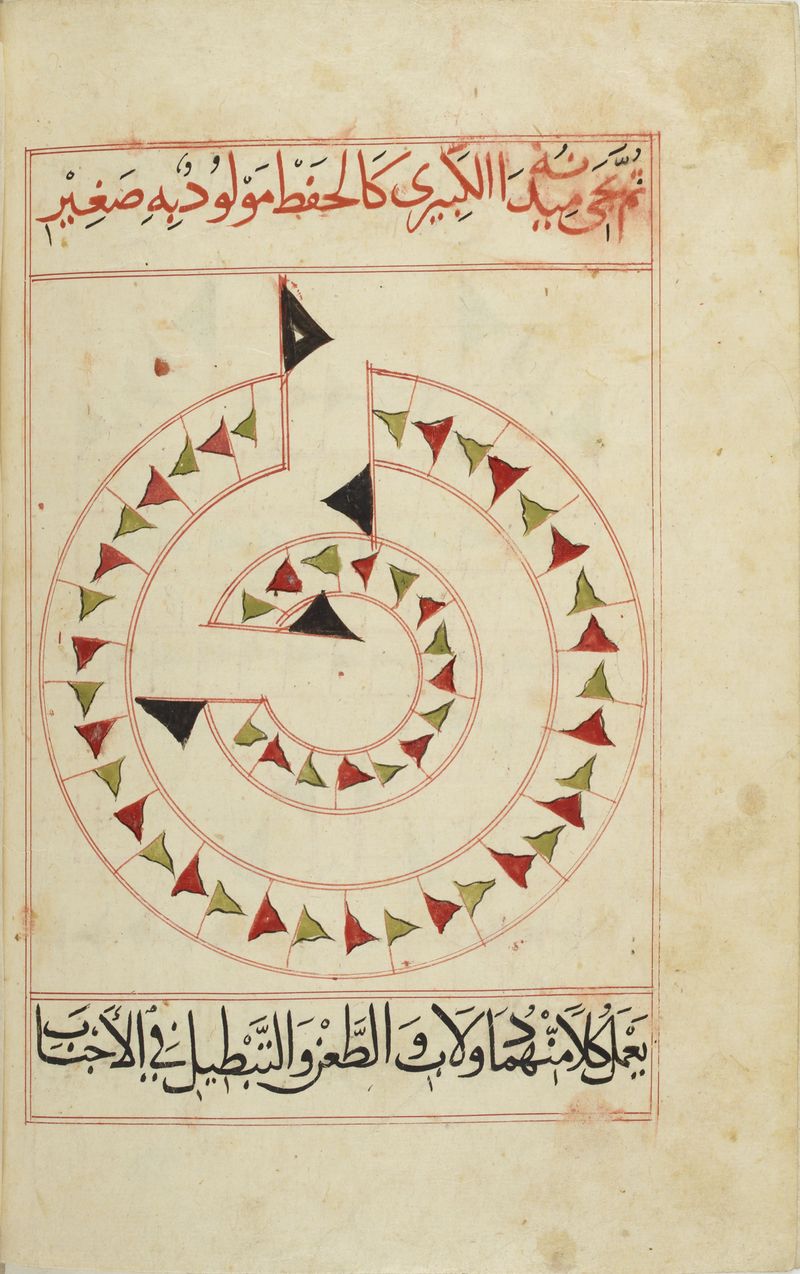 ثُمَّ يَجِئ مَيدَنُه الكَبِيرِى كَالحَفَظ مَوْلُود بِهِ صَغِيْرِ
يَعْمَلُ كُلاً مِنْهُمَا دُولَاب وَ الطَّعْنِ وَ التَّبْطِيل فِى الأَجْنَاب